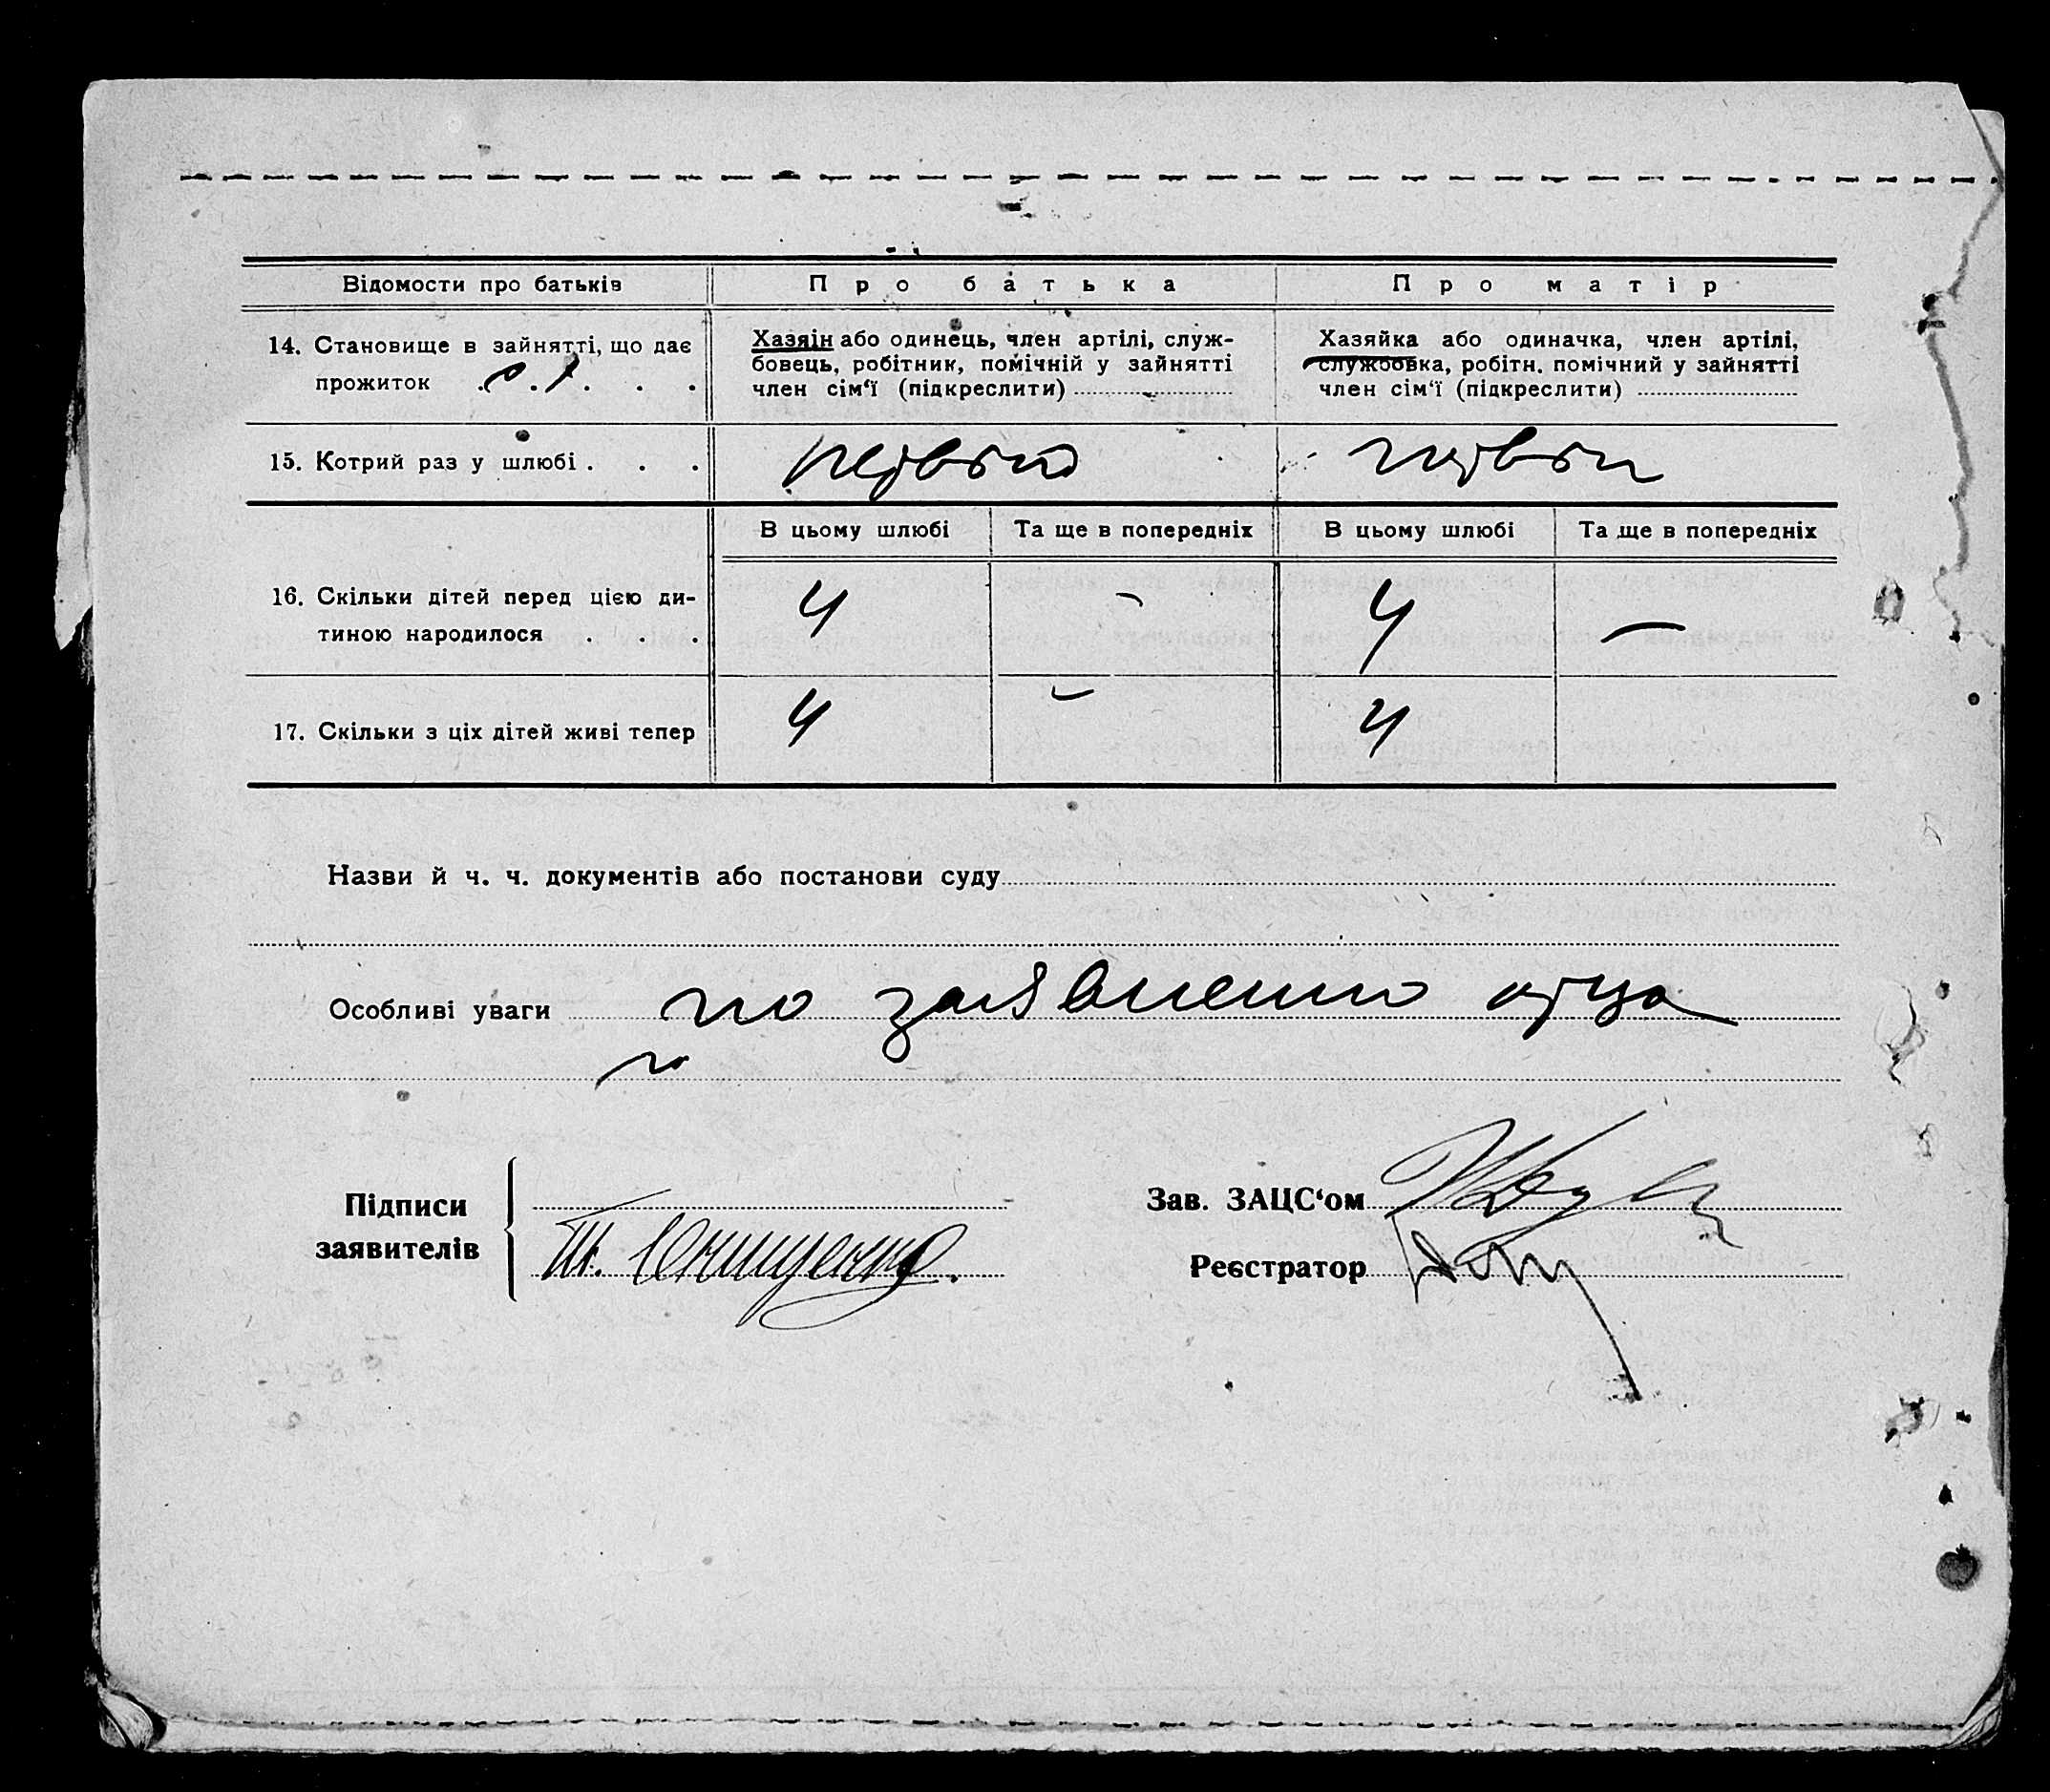 Відомости про батьків
Про батька
Про матір
14. Становище в зайнятті, що дає
прожиток . с. х. . . .
Хазяін або одинець, член артілі, служ-
бовець, робітник, помічній у зайнятті
член сім‘ї (підкреслити)
Хазяйка або одиначка, член артілі,
службовка, робітн. помічний у зайнятті
член сім‘ї (підкреслити)
15. Котрий раз у шлюбі . . .
первый
первы
В цьому шлюбі
Та ще в попередніх
В цьому шлюбі
Та ще в попередніх
16. Скільки дітей перед цією ди-
тиною народилося . . .
4
-
4
—
17. Скільки з ціх дітей живі тепер
4
-
4
Назви й ч. ч. документів або постанови суду
Особливі уваги по заявлению отца
Підписи
заявителів
Онищенко.
Зав. ЗАЦС‘ом
Реєстратор